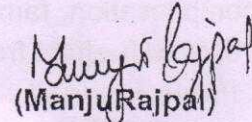 Manju Rajpal
(ManjuRajpal)